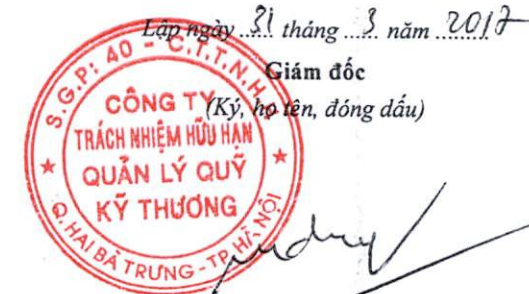 Lập ngày 31 tháng 3 năm 2017
Giám đốc
(Ký, họ tên, đóng dấu)
S.G.P: 40 - C.T.T.N.H.H
CÔNG TY
TRÁCH NHIỆM HỮU HẠN
QUẢN LÝ QUỸ
KỸ THƯƠNG
Q. HAI BÀ TRƯNG - TP. HÀ NỘI